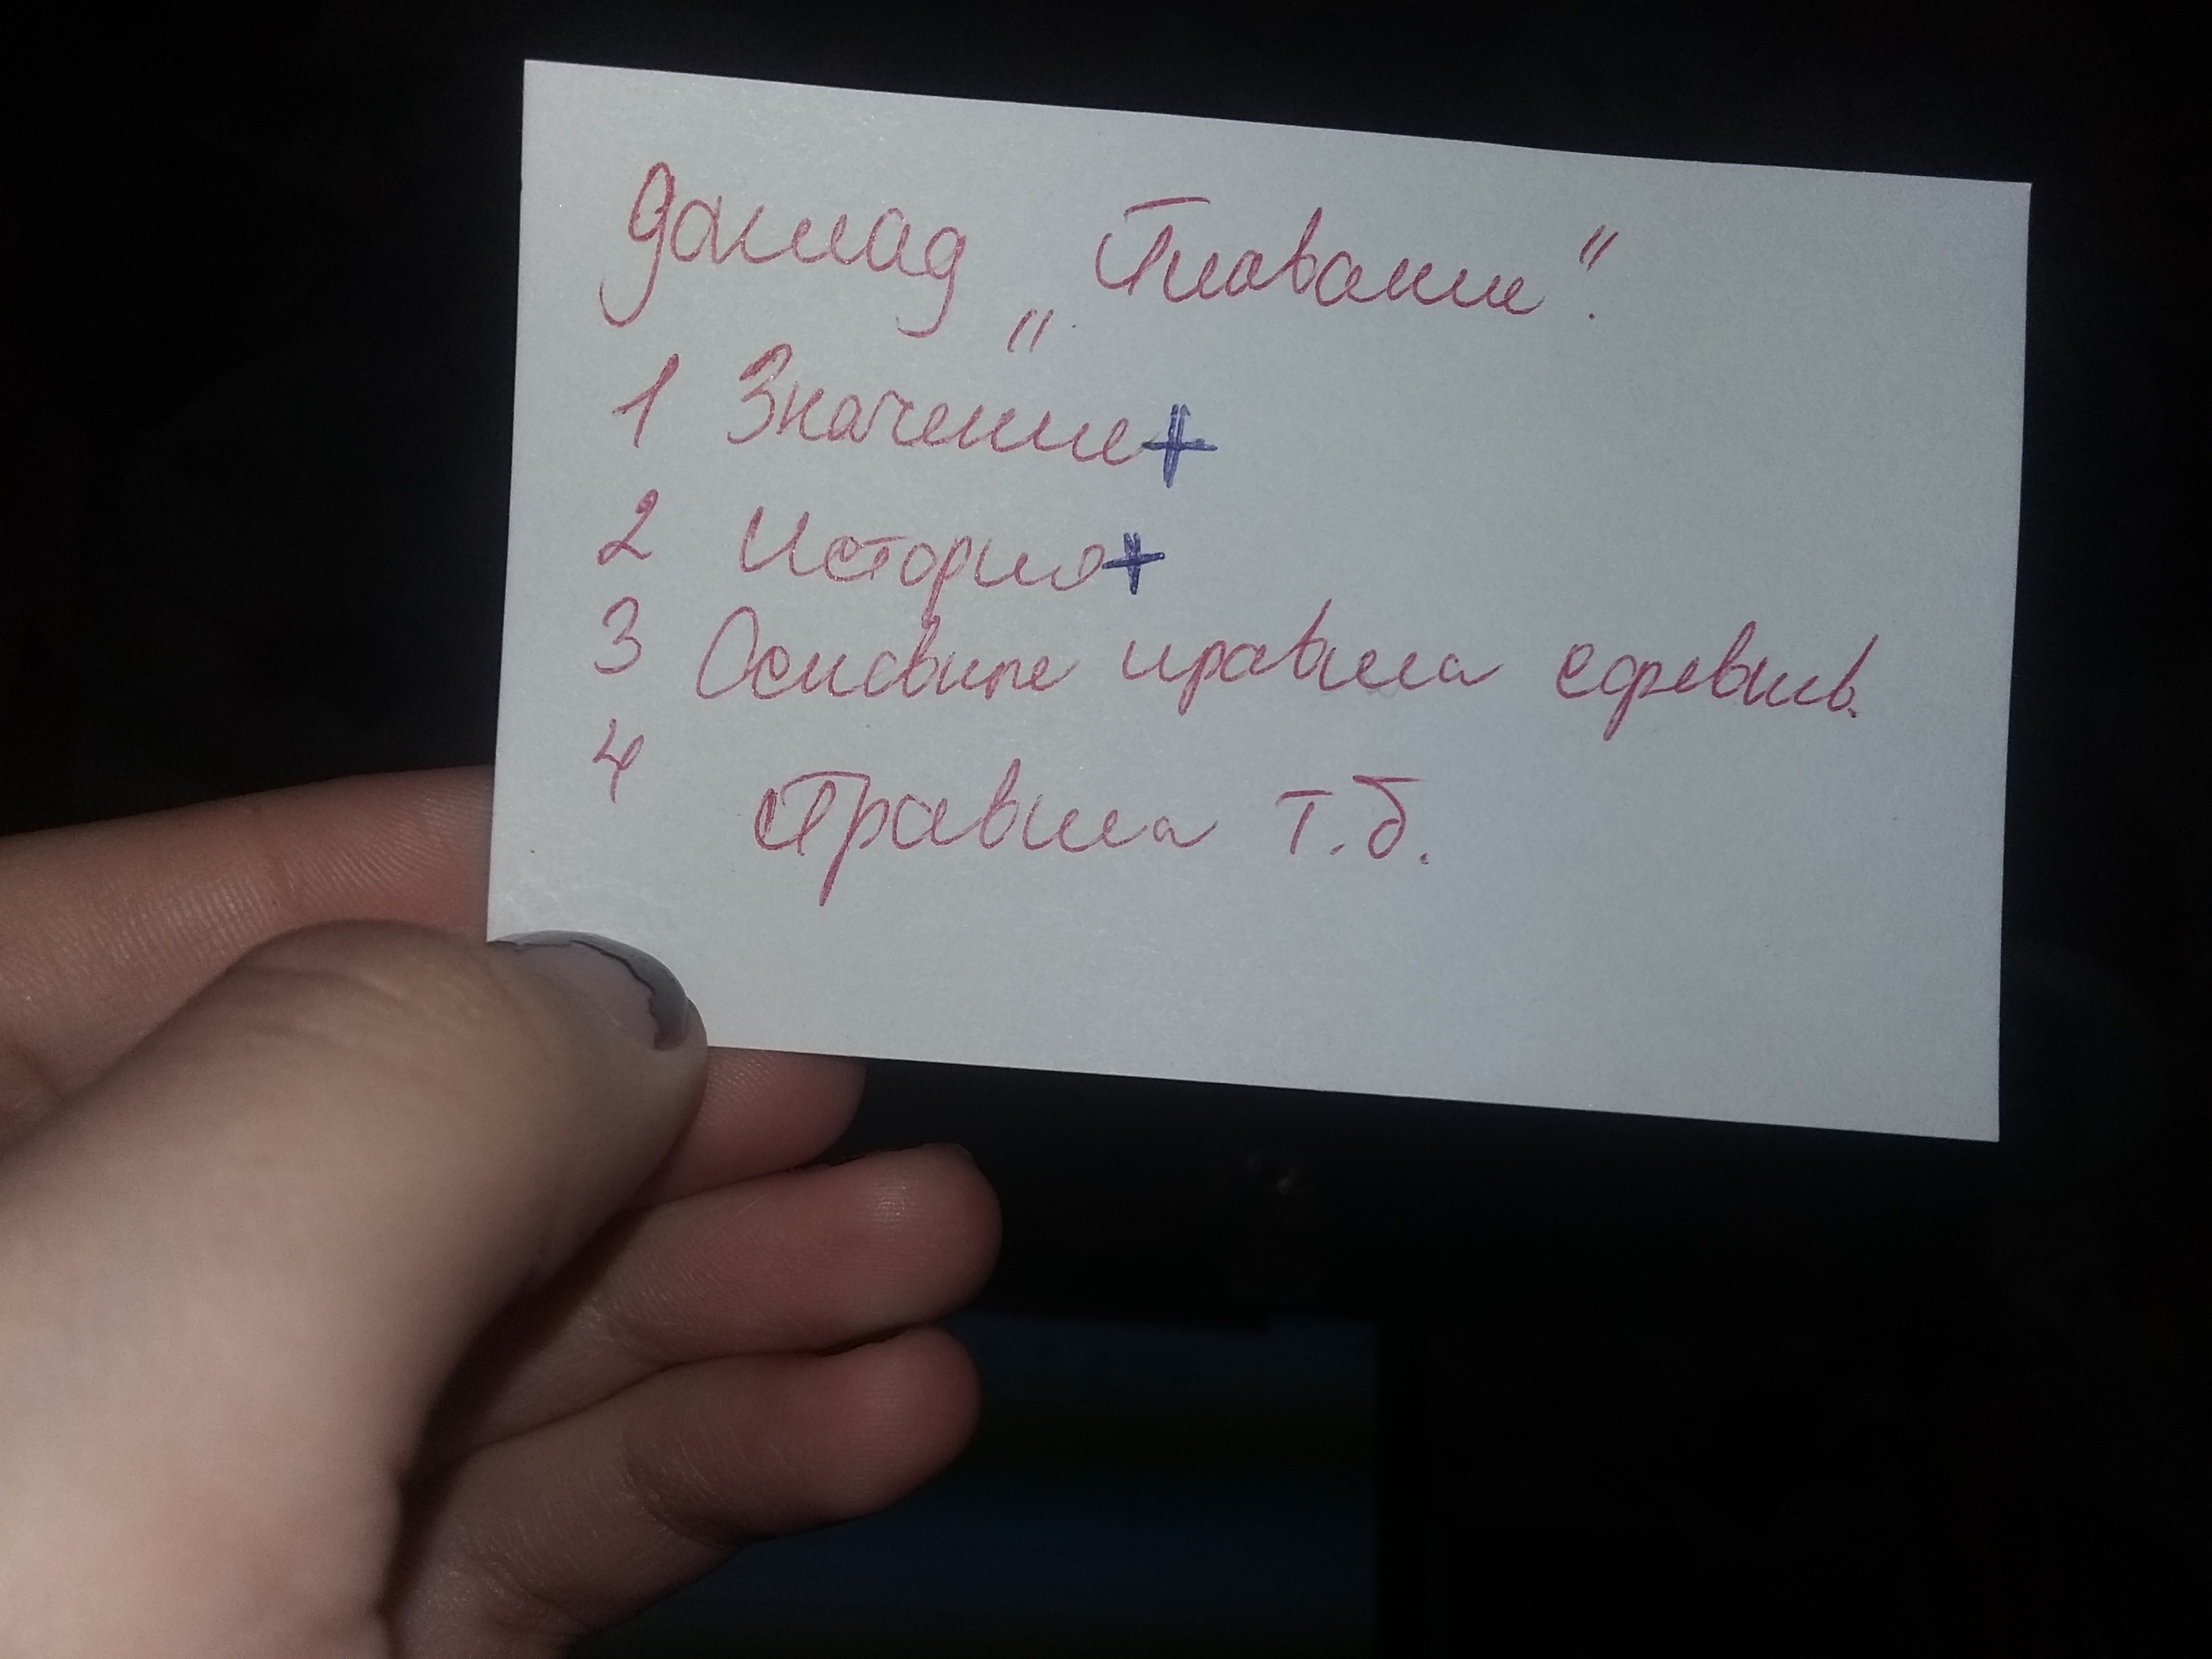 доклад „Плавание".
1 Значение+
2 История+
3 Основные правила соревнов.
4 Правила т.б.